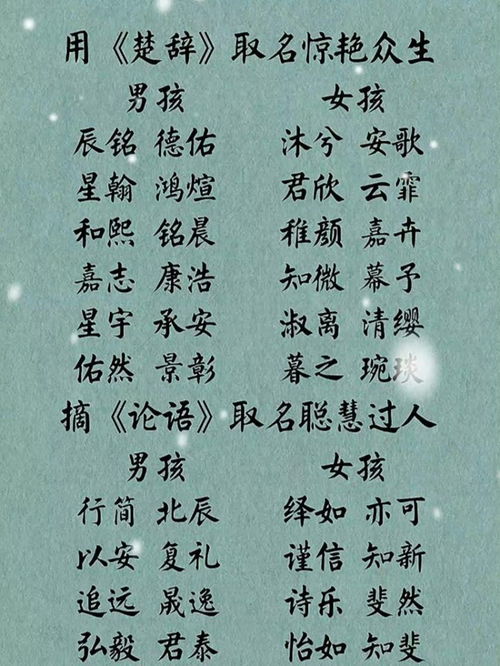 用《楚辞》取名惊艳众生
男孩 女孩
辰铭 德佑 沐兮 安歌
星翰 鸿煊 君欣 云霏
和熙 铭晨 稚颜 嘉卉
嘉志 康浩 知微 幕予
星宇 承安 淑离 清缨
佑然 景彰 暮之 琬琰
摘《论语》取名聪慧过人
男孩 女孩
行简 北辰 绎如 亦可
以安 复礼 谨信 知新
追远 晟逸 诗乐 斐然
弘毅 君泰 怡如 知斐